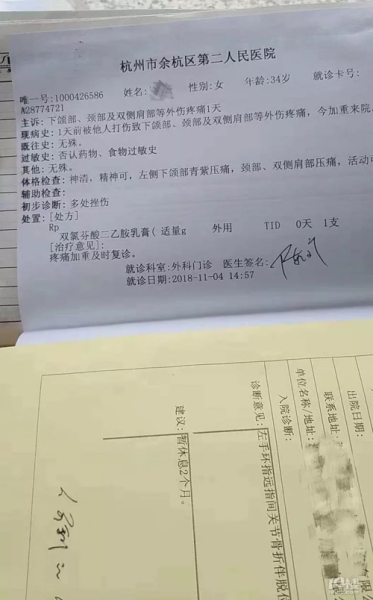 杭州市余杭区第二人民医院
唯一号:1000426586 姓名: 性别:女 年龄:34岁 就诊卡号:
N28774721
主诉:下颌部、颈部及双侧肩部等外伤疼痛1天
现病史:1天前被他人打伤致下颌部、颈部及双侧肩部等外伤疼痛,今加重来院
既往史:无殊。
过敏史:否认药物、食物过敏史
其他:无殊。
体格检查:神清,精神可,左侧下颌部青紫压痛,颈部、双侧肩部压痛,活动可
辅助检查:
初步诊断:多处挫伤
处置:[处方]
Rp
双氯芬酸二乙胺乳膏( 适量g 外用 TID 0天 1支
[治疗意见]:
疼痛加重及时复诊。
就诊科室:外科门诊 医生签名:
就诊日期:2018-11-04 14:57
出院日期:
联系地址:
单位名称/地址:
入院诊断:
诊断意见:左手环指远指间关节骨折伴脱位
建议:暂休息2个月。